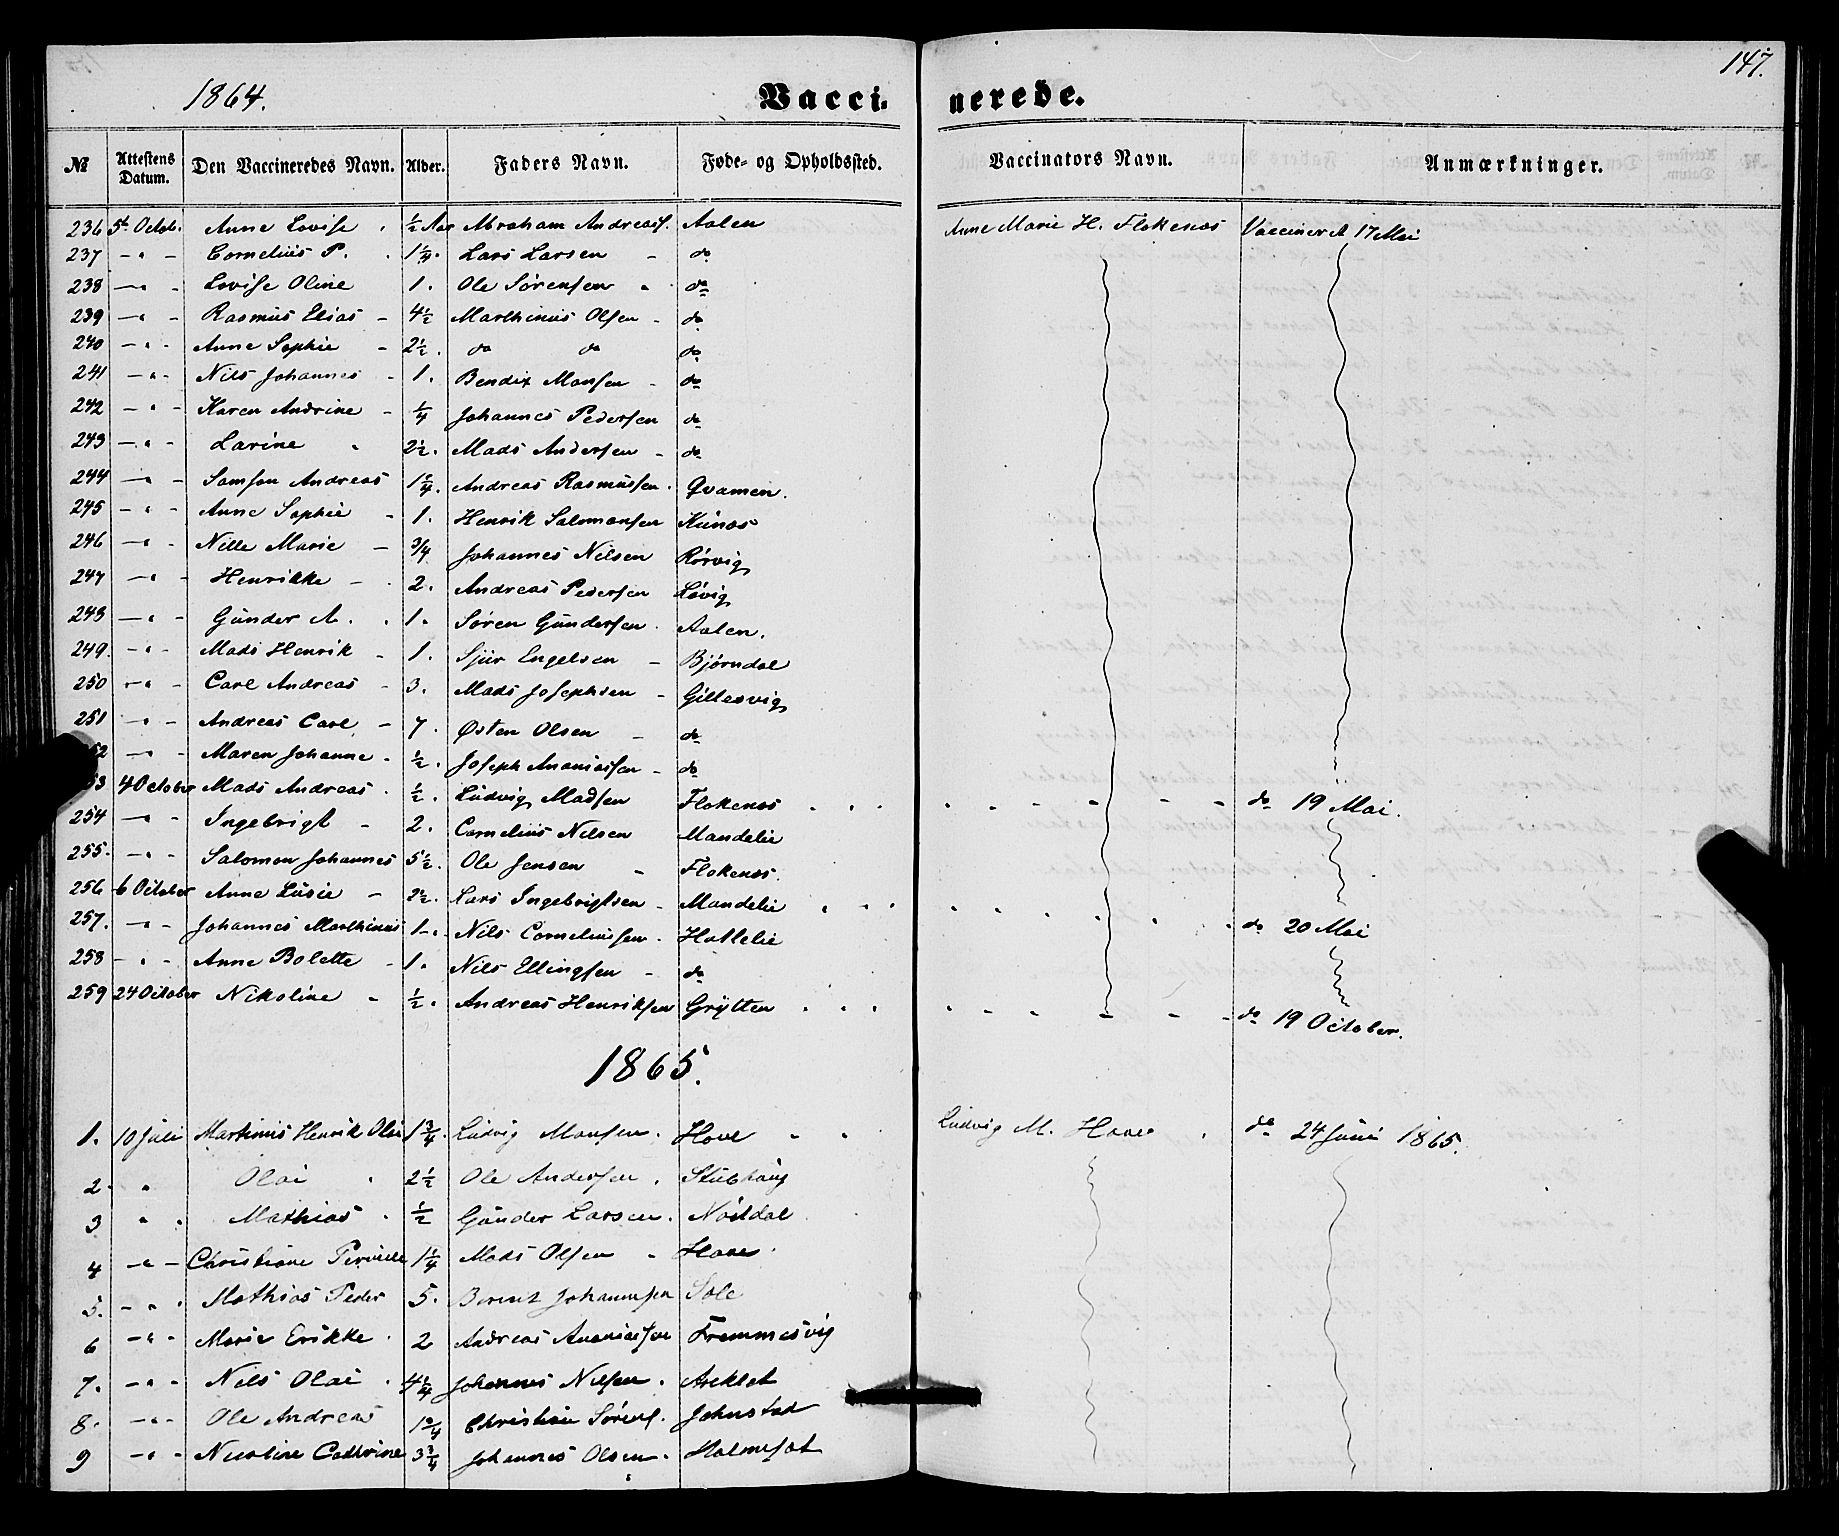 147.
1864. Vacci- nerede.
№ Attestens Datum. Den Vaccineredes Navn. Alder. Faders Navn. Føde- og Opholdssted. Vaccinators Navn. Anmærkninger.
236 5te Octob. Anne Lovise ½ Aar Abraham Andreass. Aalen Anne Marie H. Flokenæs Vaccineret 17 Mai
237 - " - Cornelius P. 1¼. Lars Larsen - do
238 - " - Lovise Oline 1. Ole Sørensen " do
239 - " - Rasmus Elias - 4½ Marthinus Olsen - do
240 - " - Anne Sophie - 2½. do do do
241 - " - Nils Johannes - 1. Bendix Monsen - do
242 - " - Karen Andrine - ¼ Johannes Pedersen do
243 - " - Larine 2½. Mads Andersen - do
244 - " - Samson Andreas Andreas Rasmussen. Qvamen.
245 - " - Anne Sophie - 1. Henrik Salomonsen Kinæs
246 - " - Nille Marie - 3/4 Johannes Nilsen Rørvig
247 - " - Henrikke - 2. Andreas Pedersen Løvig
248 - " - Gunder A. 1. Søren Gundersen. Aalen.
249. - " - Mads Henrik - 1. Sjur Engelsen - Bjørndal
250 - " - Carl Andreas - 3. Mads Josephsen - Gillesvig
251 - " - Andreas Carl - 7. Østen Olsen - do
52 - " - Maren Johanne - ½. Joseph Ananiassen - do
53 4 October Mads Andreas. ½. Ludvig Madsen Flokenæs . . . - - - - - - do 19 Mai.
254 - " - Ingebrigt - 2. Cornelius Nilsen Mandelie
255. - " - Salomon Johannes 5½. Ole Jensen - Flokenæs.
256 6 October Anne Lusie - Lars Ingebrigtsen - Mandelie . . .
257. - " - Johannes Marthinus 1-. Nils Corneliussen. Hatlelie do 20 Mai
258 - " - Anne Bolette - 1. Nils Ellingsen - do
259 24 October Nikoline - ½. Andreas Henriksen Grytten . . . - - - - - - do 19 October.
1865.
1. 10 Juli Martinus Henrik Olai 1¾. Ludvig Monsen. Hove " " Ludvig M. Hove . do 24 Juni 1865.
2. " Olai 2½ Ole Andersen. Stubhaug
3 " . Mathias . ½ Gunder Larsen. Nordal
4 - " - Christiane Pernille 1¼ Mads Olsen - Hove.
5. - " . Mathias Peder 5. Berent Johannesen Sole
6 - " - Marie Erikke . 2 Andreas Ananiassen Fremmesvig
7. - " - Nils Olai . 4¼ Johannes Nilsen. Areklet
8. - " - Ole Andreas Christian Sørens. Johnstad
9 - " - Nicoline Cathrine 3¾ Johannes Olsen. Holmeset